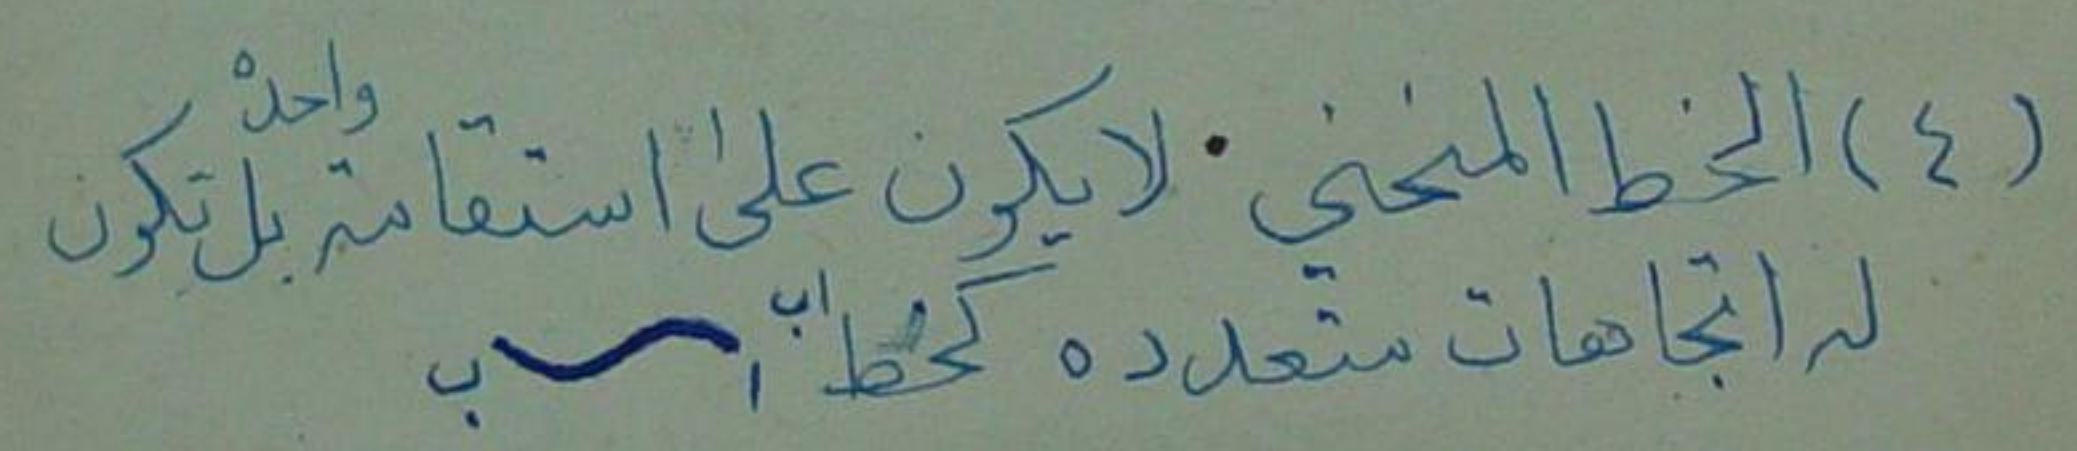 (٤) الخط المنحني . لا يكون على استقامة واحده بل تكون
له اتجاهات متعدده كخط اب ا ب